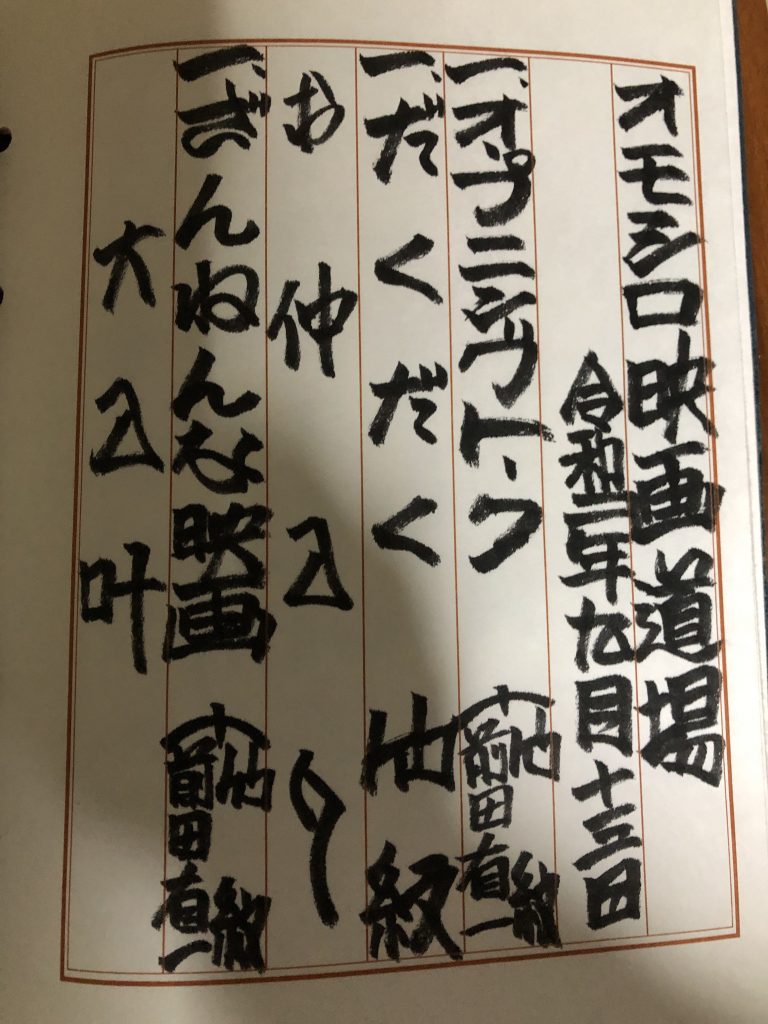 オモシロ映画道場
令和二年九月十三日
一、オープニングトーク
前田有一
一、だくだく
お仲入り
一、ざんねんな映画
前田有一
大入叶